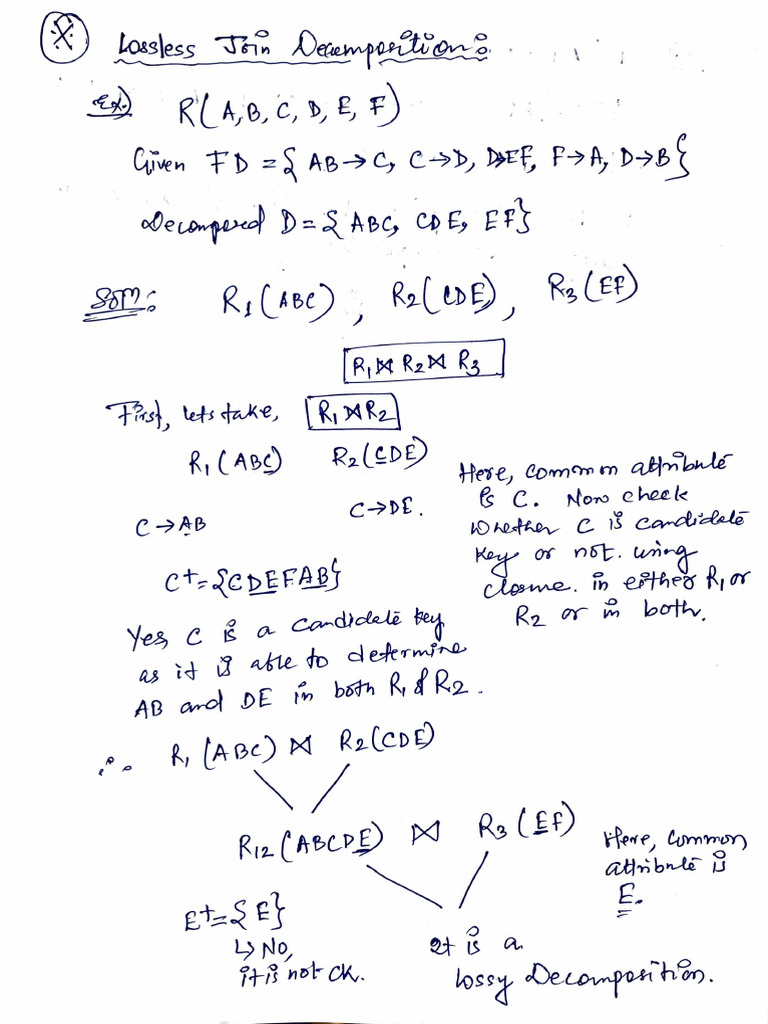 * Lossless Join Decomposition:
Ex) R(A, B, C, D, E, F)
Given FD = { AB→C, C→D, D→EF, F→A, D→B }
Decomposed D = { ABC, CDE, EF }
Soln: R1(ABC), R2(CDE), R3(EF)
R1 ⋈ R2 ⋈ R3
First, lets take, R1 ⋈ R2
R1(ABC) R2(CDE)
C→AB C→DE.
C+ = {CDEFAB}
Here, common attribute
is C. Now check
whether C is candidate
key or not. using
closure. in either R1 or
R2 or in both.
Yes, C is a candidate key
as it is able to determine
AB and DE in both R1 & R2.
∴ R1(ABC) ⋈ R2(CDE)
R12(ABCDE) ⋈ R3(EF)
Here, common
attribute is
E.
E+ = {E}
↳ No,
it is not CK.
It is a
lossy Decomposition.